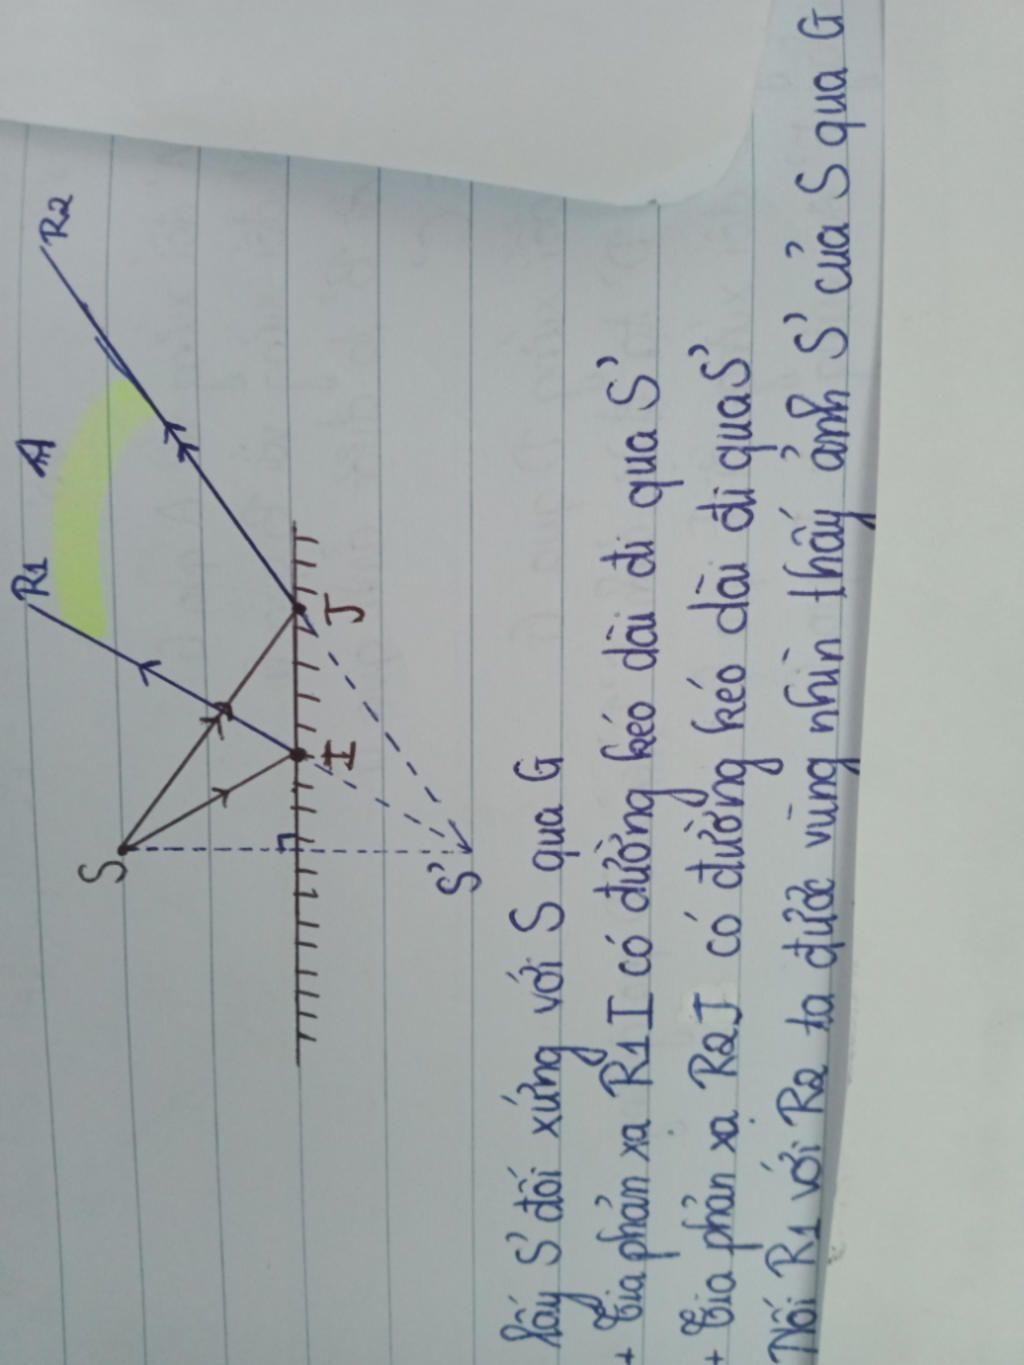 R1
A
R2
S
I
J
S'
Lấy S' đối xứng với S qua G
+ Tia phản xạ R1I có đường kéo dài đi qua S'
+ Tia phản xạ R2J có đường kéo dài đi qua S'
Nối R1 với R2 ta được vùng nhìn thấy ảnh S' của S qua G